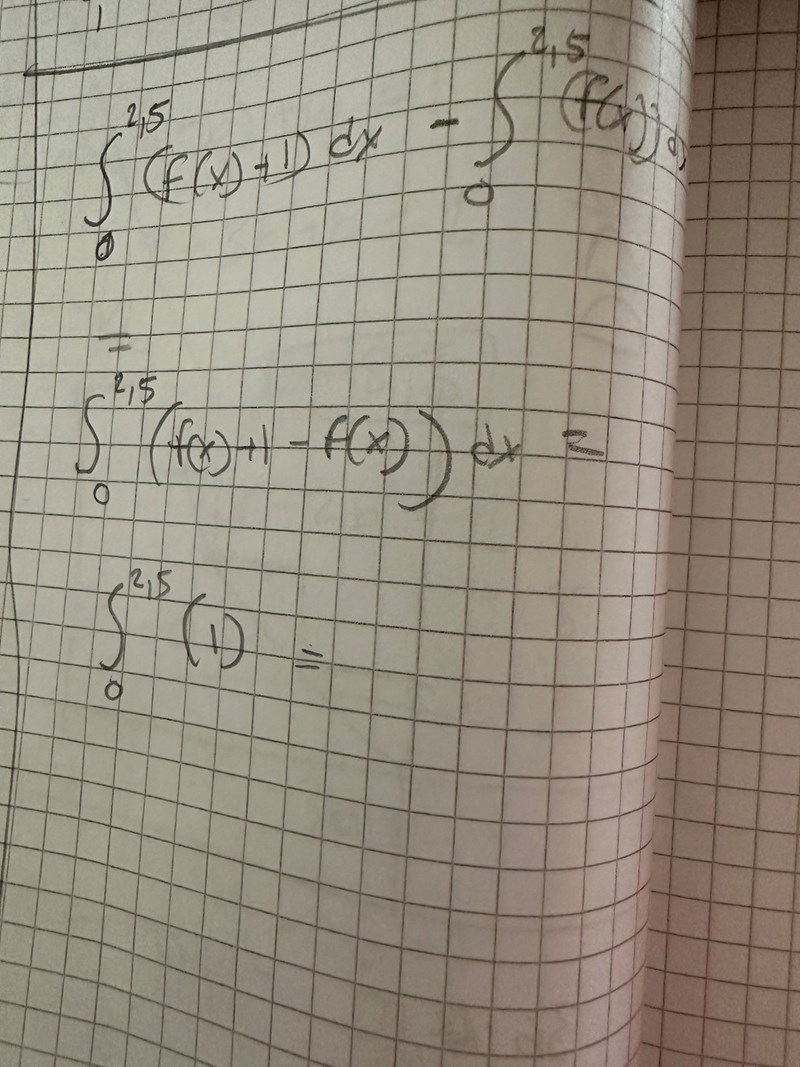 1
∫₀^{2,5} (f(x)+1) dx - ∫₀^{2,5} (f(x)) dx
=
∫₀^{2,5} (f(x)+1-f(x)) dx =
∫₀^{2,5} (1) =